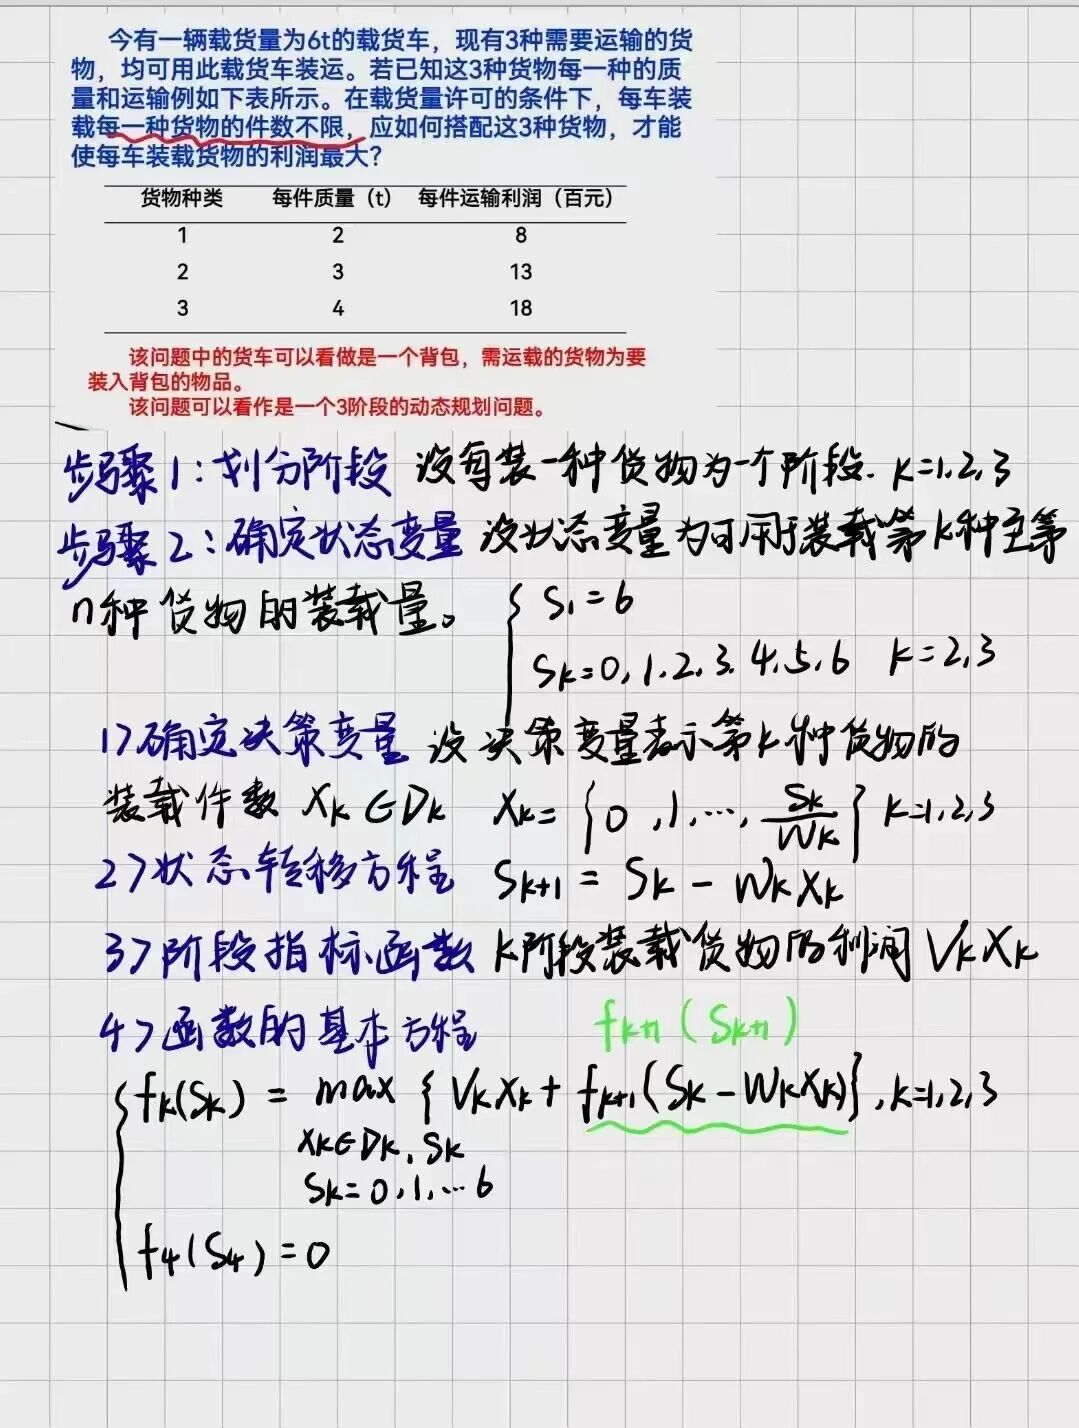 今有一辆载货量为6t的载货车，现有3种需要运输的货
物，均可用此载货车装运。若已知这3种货物每一种的质
量和运输例如下表所示。在载货量许可的条件下，每车装
载每一种货物的件数不限，应如何搭配这3种货物，才能
使每车装载货物的利润最大？
货物种类 每件质量（t） 每件运输利润（百元）
1 2 8
2 3 13
3 4 18
该问题中的货车可以看做是一个背包，需运载的货物为要
装入背包的物品。
该问题可以看作是一个3阶段的动态规划问题。
步骤1：划分阶段 设每装一种货物为一个阶段. k=1,2,3
步骤2：确定状态变量 设状态变量为可用于装载第k种至第
n种货物的装载量。 { S₁=6
Sₖ=0,1,2,3,4,5,6 k=2,3
1>确定决策变量 设决策变量表示第k种货物的
装载件数 Xₖ∈Dₖ Xₖ={0,1,…,Sₖ/Wₖ} k=1,2,3
2>状态转移方程 Sₖ₊₁=Sₖ-WₖXₖ
3>阶段指标函数 k阶段装载货物的利润VₖXₖ
4>函数的基本方程 fₖ₊₁(Sₖ₊₁)
{ fₖ(Sₖ)=max{VₖXₖ+fₖ₊₁(Sₖ-WₖXₖ)},k=1,2,3
Xₖ∈Dₖ,Sₖ
Sₖ=0,1,…6
f₄(S₄)=0